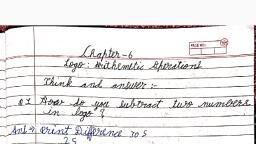 PAGE NO.:
Chapter-6
Logo: Arithmetic Operations
Think and answer:-
Q1 How do you subtract two numbers
in logo?
Ans → Print Difference 70 5
25